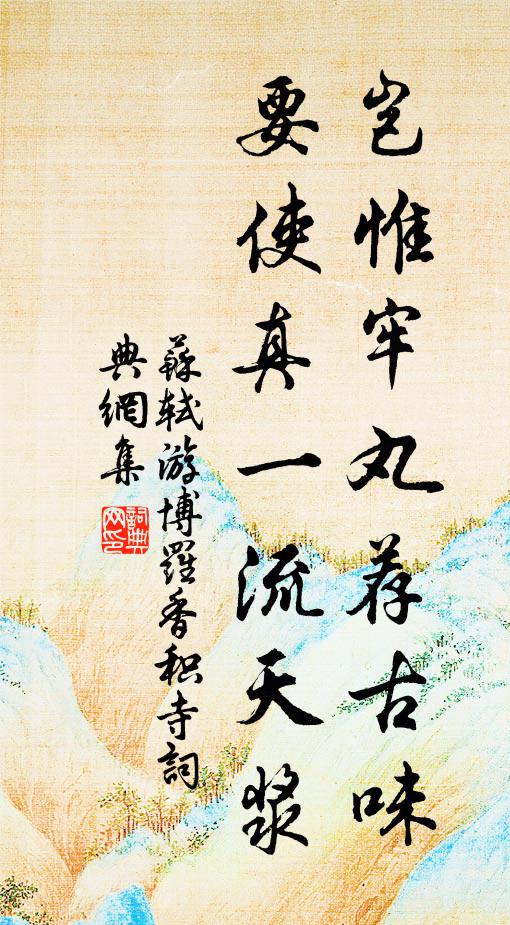 豈惟牢丸荐古味
要使真一流天漿
蘇軾游博羅香积寺詞
典網集
詞典網印